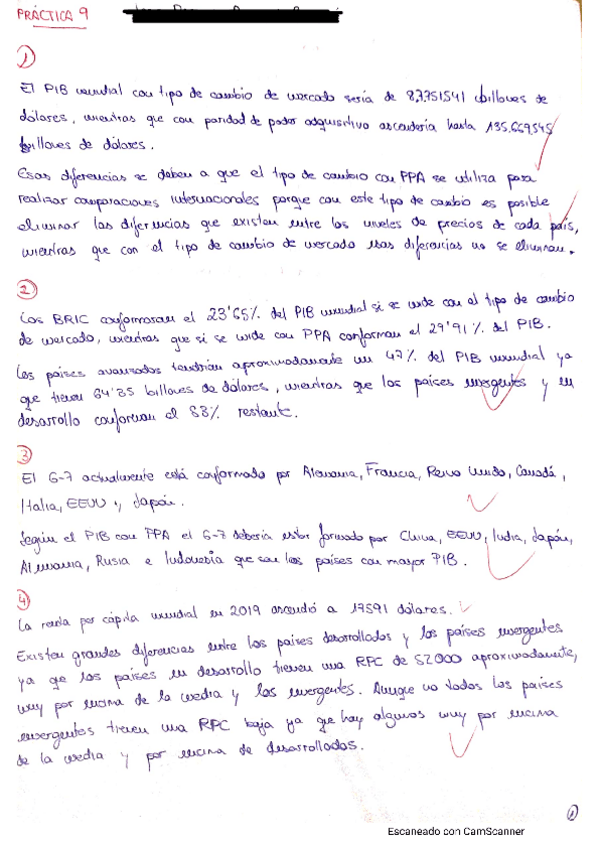 PRÁCTICA 9
1)
El PIB mundial con tipo de cambio de mercado sería de 87,751541 billones de
dólares, mientras que con paridad de poder adquisitivo ascendería hasta 135,669545
billones de dólares.
Esas diferencias se deben a que el tipo de cambio con PPA se utiliza para
realizar comparaciones internacionales porque con este tipo de cambio es posible
eliminar las diferencias que existen entre los niveles de precios de cada país,
mientras que con el tipo de cambio de mercado esas diferencias no se eliminan.
2)
Los BRIC conformaron el 23'65% del PIB mundial si se mide con el tipo de cambio
de mercado, mientras que si se mide con PPA conforman el 29'91% del PIB.
Los países avanzados tendrían aproximadamente un 47% del PIB mundial ya
que tienen 64'35 billones de dólares, mientras que los países emergentes y en
desarrollo conforman el 53% restante.
3)
El G-7 actualmente está conformado por Alemania, Francia, Reino Unido, Canadá,
Italia, EEUU y Japón.
Según el PIB con PPA el G-7 debería estar formado por China, EEUU, India, Japón,
Alemania, Rusia e Indonesia que son los países con mayor PIB.
4)
La renta per cápita mundial en 2019 ascendió a 17591 dólares.
Existen grandes diferencias entre los países desarrollados y los países emergentes
ya que los países en desarrollo tienen una RPC de 52000 aproximadamente,
muy por encima de la media y los emergentes. Aunque no todos los países
emergentes tienen una RPC baja ya que hay algunos muy por encima
de la media y por encima de desarrollados.
1
Escaneado con CamScanner